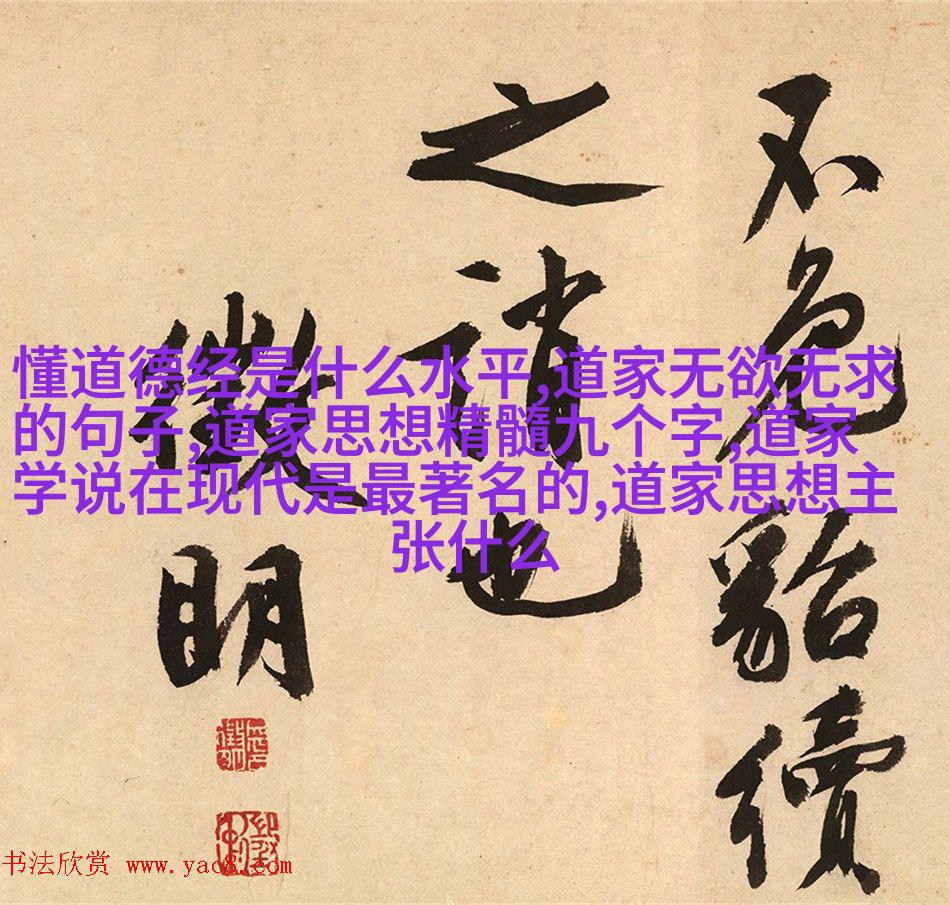 不免貂續
之誚也
徵明
懂道德经是什么水平,道家无欲无求
的句子,道家思想精髓九个字,道家
学说在现代是最著名的,道家思想主
张什么
书法欣赏 www.yac8.com